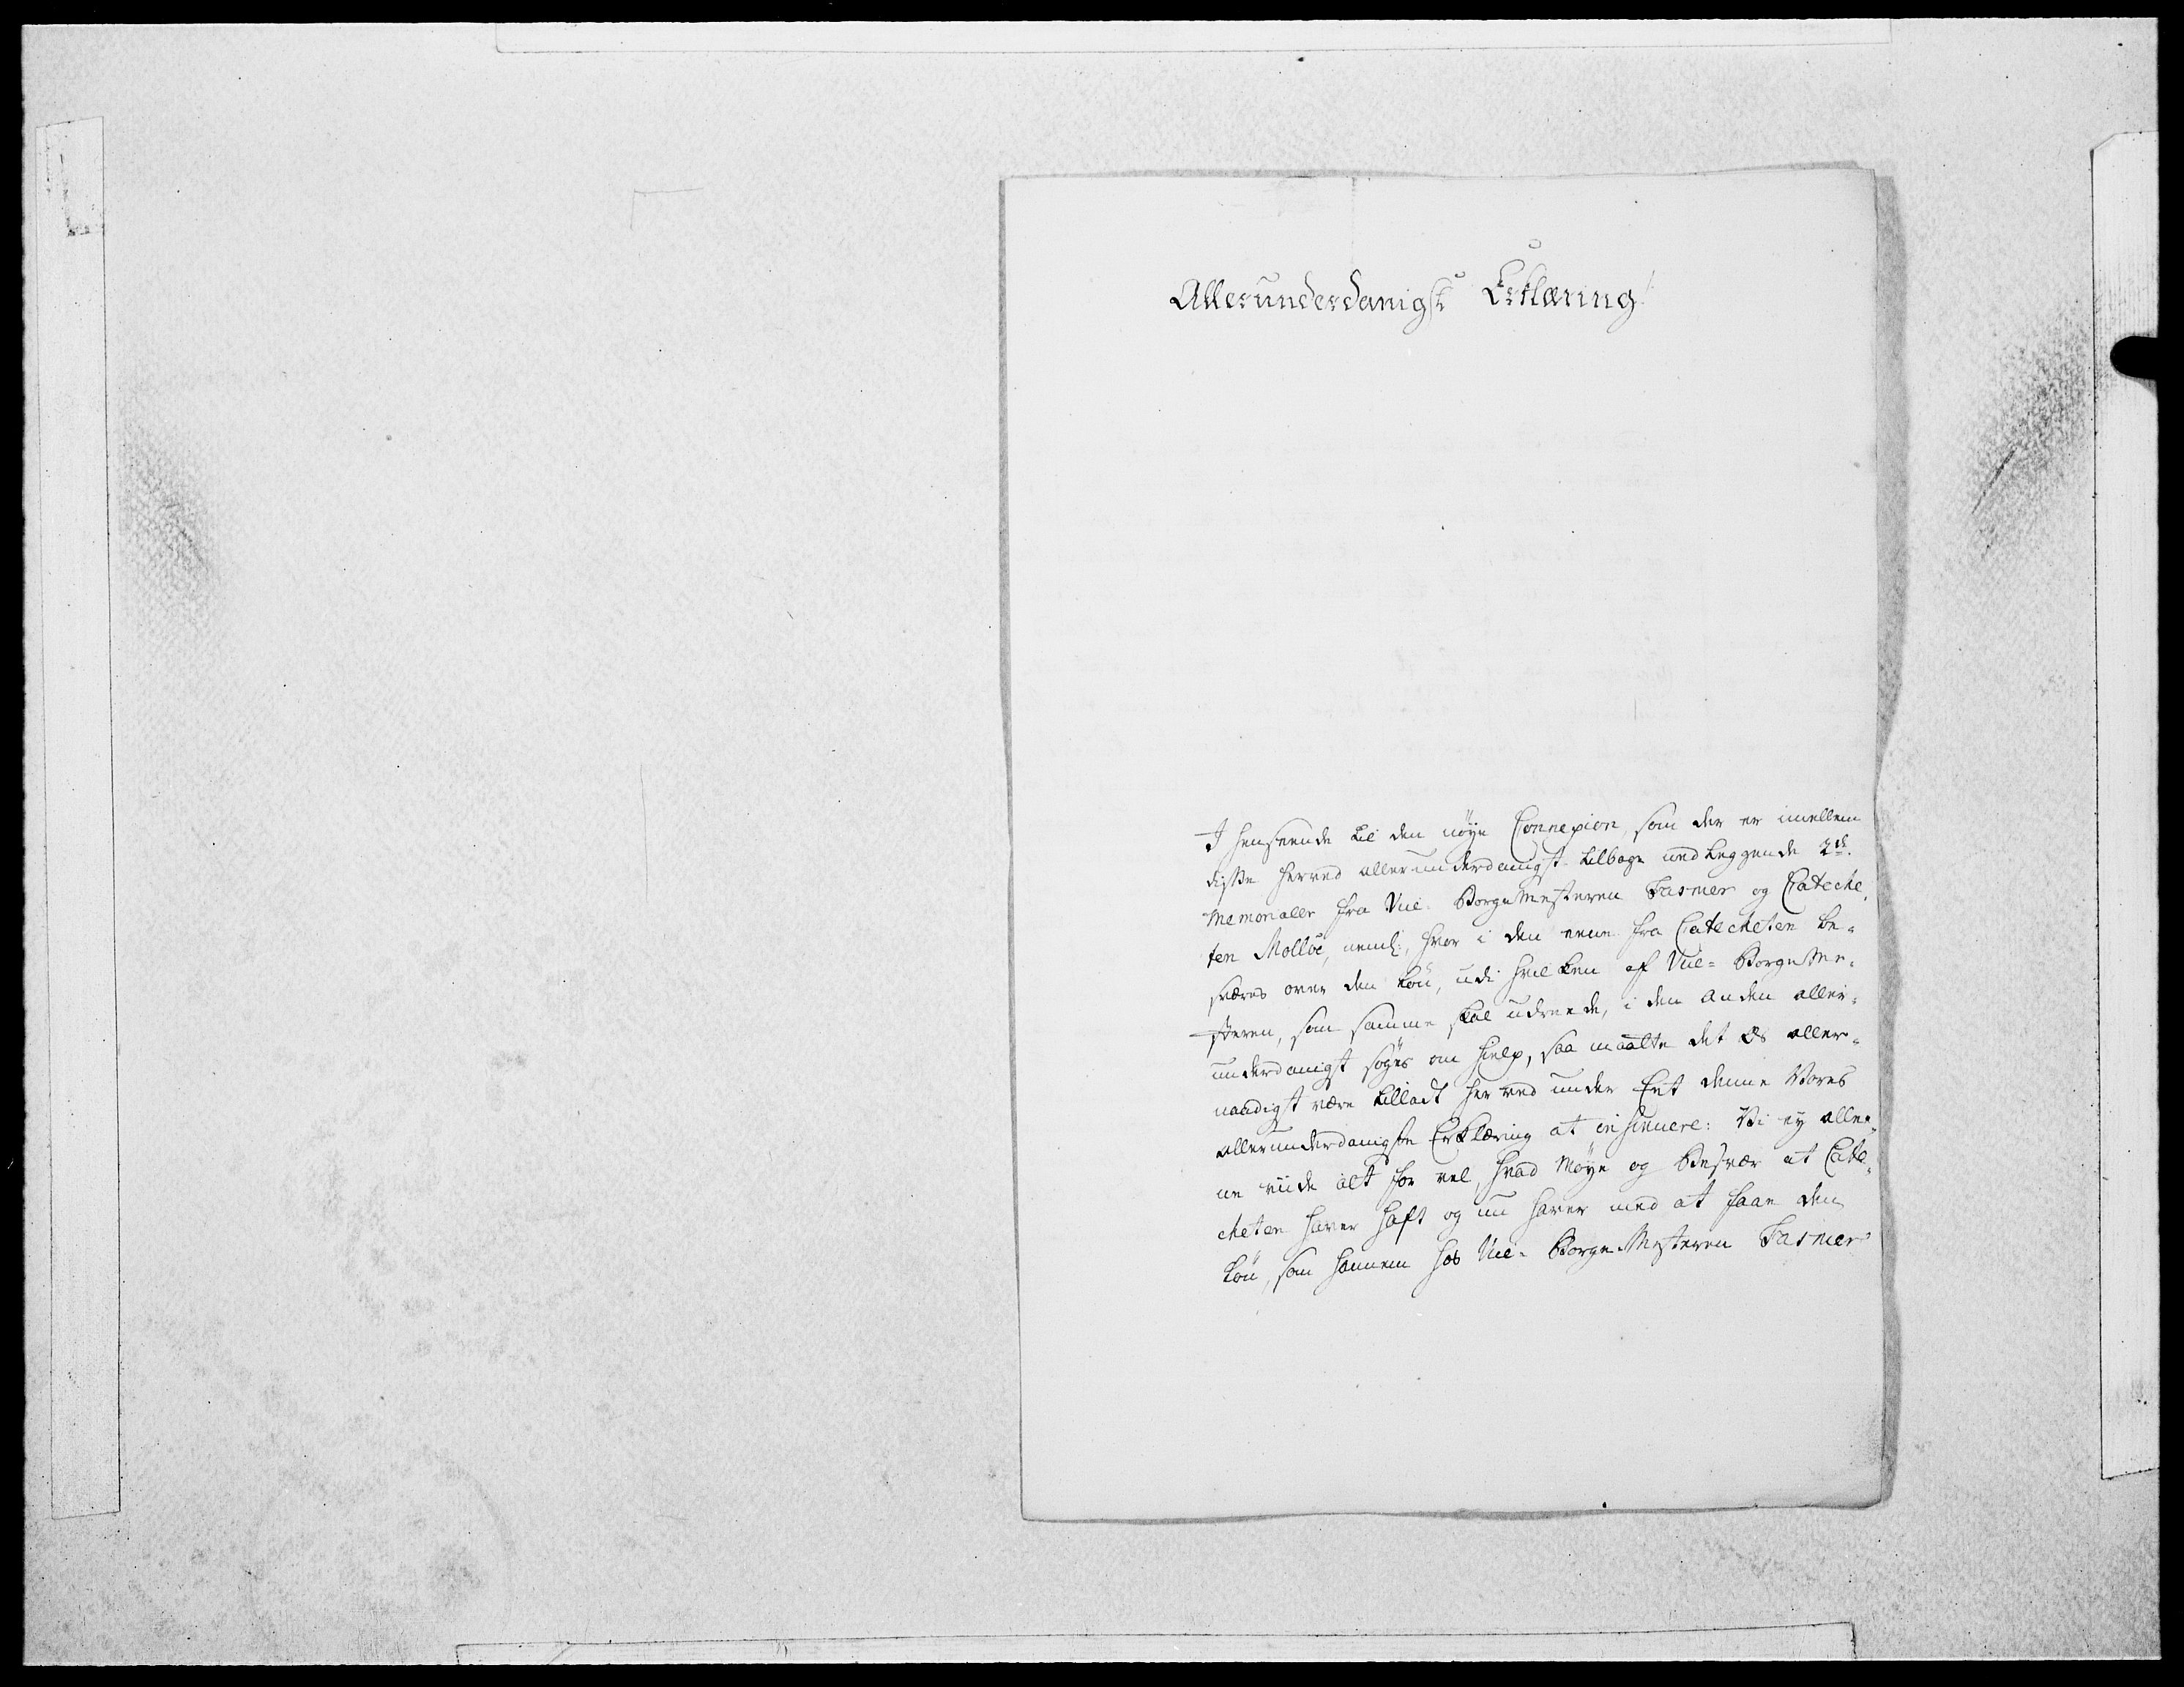 Allerunderdanigst Erklæring!
I henseende til den nøye Connexion, som der er imellem
disse herved allerunderdanigst tilbage nedleggende 2de
Memorialer fra Vice-Borgemesteren Fasmer og Cateche,
ten Molloe, neml: hvor i den eene fra Catecheten be-
sværes over den Løn, udi hvilken af Vice-Borgeme-
steren, som samme skal udreede, i den anden aller-
underdanigst søges om hielp, saa maatte det os aller-
naadigst være tilladt her ved under Eet denne Vores
allerunderdanigste Erklæring at insinuere: Vi ey allee-
ne viide alt for vel, hvad Møye og Besvær at Cate-
cheten haver haft og nu haver med at faae den
Løn, som hannem hos Vice-Borgemesteren Fasmer